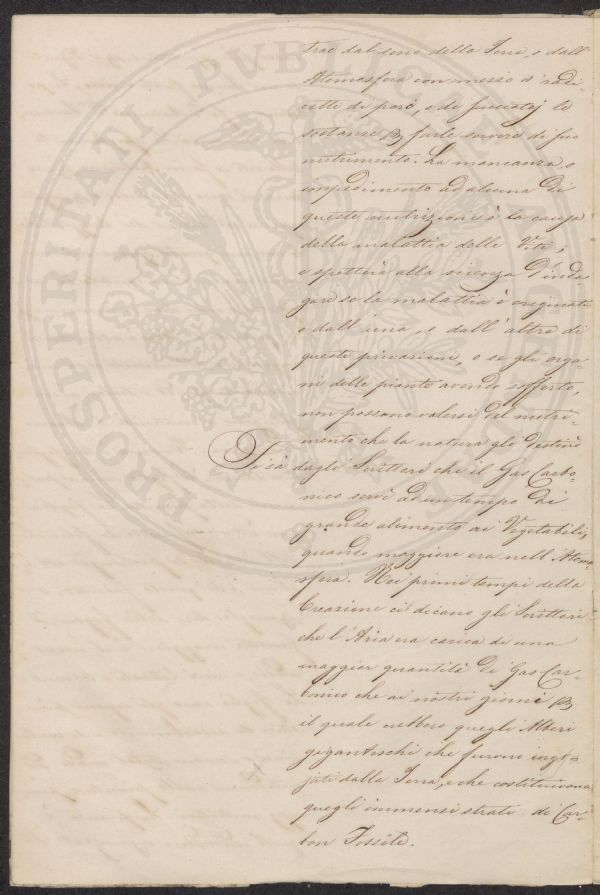 trae dal seno della Terra, o dall'
Atmosfera con mezzo a radi-
cette di però, e di succiatoj le
sostanze per farle servire di suo
nutrimento. La mancanza, o
impedimento ad alcuna di
queste nutrizioni è la causa
della malattia delle Viti;
e spetterà alla scienza d'inda-
gare se la malattia è originata
o dall'una, o dall'altra di
queste privazioni, o se gli orga-
ni delle piante avendo sofferto,
non possano valersi del nutri-
mento che la natura gli destinò
Si sà dagli Scrittori che il Gas Carbo-
nico servì ad un tempo di
grande alimento ai Vegetabili,
quando maggiore era nell'Atmo
sfera. Nei primi tempi della
Creazione ci dicono gli Scrittori
che l'Aria era carica di una
maggior quantità di Gas Car-
bonico che ai nostri giorni per
il quale ebbero quegli Alberi
giganteschi che furono ingo-
jati dalla Terra, e che costituirono
quegli immensi strati di Car-
bon Fossile.
PROSPERITATI PVBLICAE